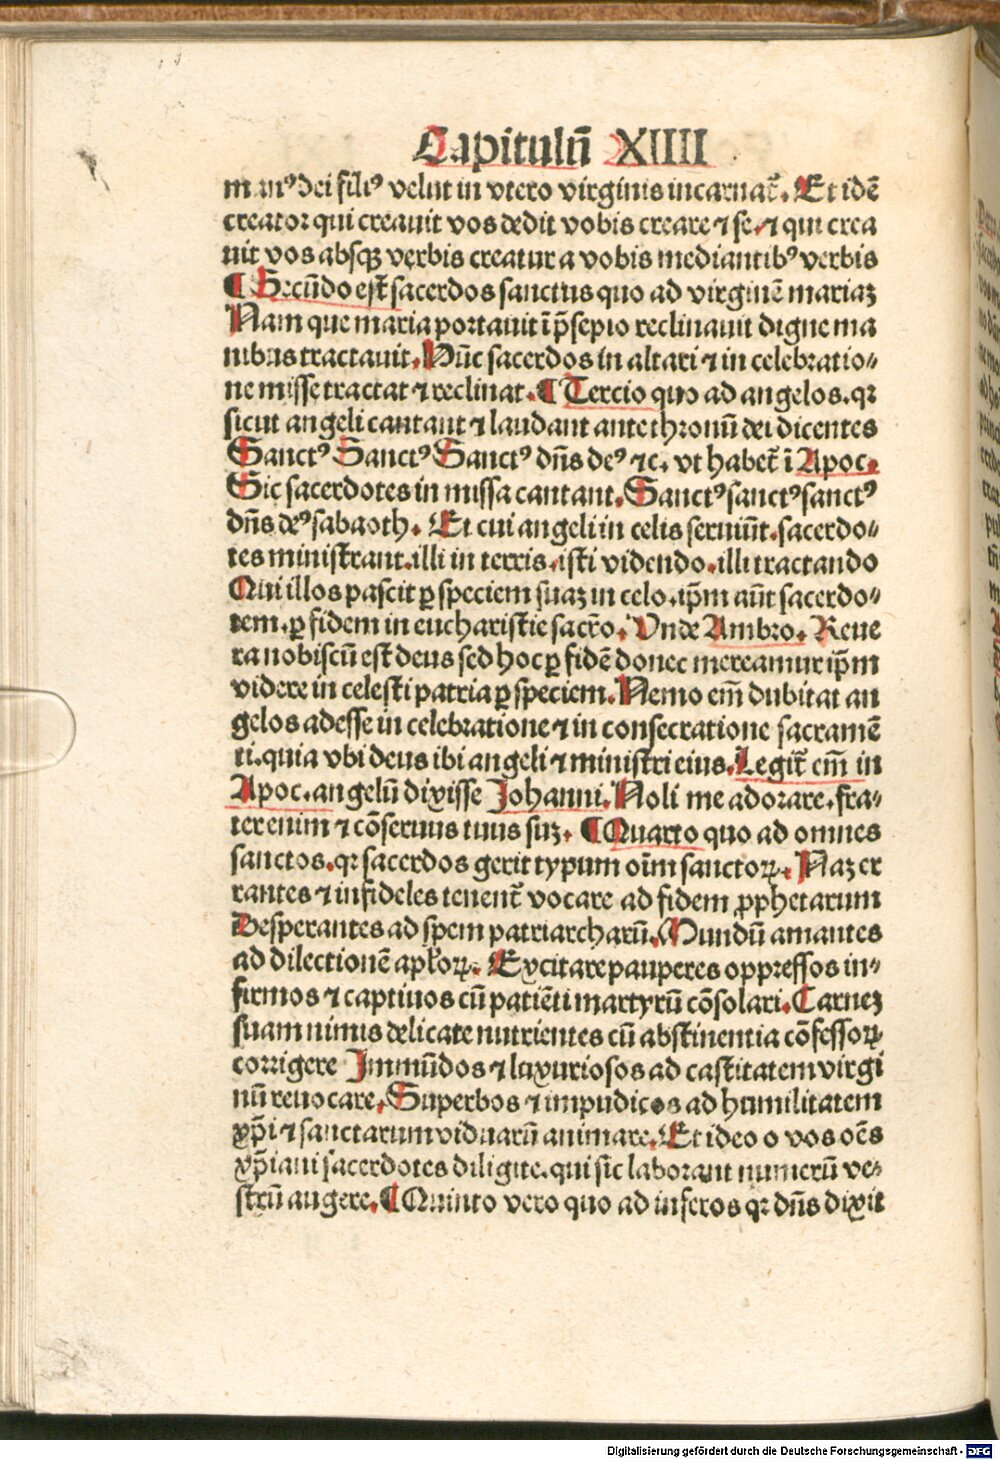 Capitulū XIIII
manꝰ dei filiꝰ velut in vtero virginis incarnat᷑. Et idē
creator qui creauit vos dedit vobis creare ⁊ se. ⁊ qui crea
uit vos absqꝫ verbis creatur a vobis mediantibꝰ verbis
¶ Secūdo est sacerdos sanctus quo ad virginē mariaꝫ
Nam que maria portauit ī p̄sepio reclinauit digne ma
nibus tractauit. Nūc sacerdos in altari ⁊ in celebratio⸗
ne misse tractat ⁊ reclinat. ¶ Tercio quo ad angelos. qꝛ
sicut angeli cantant ⁊ laudant ante thronū dei dicentes
Sanctꝰ Sanctꝰ Sanctꝰ dn̄s deꝰ ⁊c. vt habet᷑ ī Apoc.
Sic sacerdotes in missa cantant. Sanctꝰ sanctꝰ sanctꝰ
dn̄s deꝰ sabaoth. Et cui angeli in celis seruiūt. sacerdo⸗
tes ministrant. illi in terris. isti videndo. illi tractando
Qui illos pascit ꝑ speciem suaꝫ in celo. ip̄m aūt sacerdo⸗
tem. ꝑ fidem in eucharistie sacr̄o. Vnde Ambro. Reue
ra nobiscū est deus sed hoc ꝑ fidē donec mereamur ip̄m
videre in celesti patria ꝑ speciem. Nemo em̄ dubitat an
gelos adesse in celebratione ⁊ in consecratione sacramē
ti. quia vbi deus ibi angeli ⁊ ministri eius. Legit᷑ em̄ in
Apoc. angelū dixisse Johanni. Noli me adorare. fra⸗
ter enim ⁊ cōseruus tuus suꝫ. ¶ Quarto quo ad omnes
sanctos. qꝛ sacerdos gerit typum oīm sanctoꝝ. Naꝫ er
rantes ⁊ infideles tenent᷑ vocare ad fidem ꝓphetarum
Desperantes ad spem patriarcharū. Mundū amantes
ad dilectionē apl̄oꝝ. Excitare pauperes oppressos in⸗
firmos ⁊ captiuos cū patiēti martyrū cōsolari. Carneꝫ
suam nimis delicate nutrientes cū abstinentia cōfessoꝝ
corrigere Jmmūdos ⁊ luxuriosos ad castitatem virgi
nū reuocare. Superbos ⁊ impudicos ad humilitatem
xp̄i ⁊ sanctarum viduarū animare. Et ideo o vos oēs
xp̄iani sacerdotes diligite. qui sic laborant numerū ve⸗
strū augere. ¶ Quinto vero quo ad inferos qꝛ dn̄s dixit
Digitalisierung gefördert durch die Deutsche Forschungsgemeinschaft - DFG